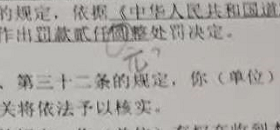 的规定，依据《中华人民共和国道
作出罚款贰仟圆整处罚决定。
元？
、第三十二条的规定，你（单位）
关将依法予以核实。